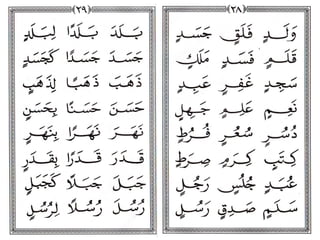 (٢٨)
وَلَدٍ فَلَقٍ جَسَدٍ
قَلَمٍ فَسَدٍ مَلَكٍ
سَجِدٍ غَفِرٍ عَبِدٍ
نَعِمٍ عَلِمٍ جَهِلٍ
دُسُرٍ سُعُرٍ فُرُطٍ
كِتَبٍ كِرَمٍ صِرَطٍ
عُبَدٍ جُلُسٍ رَجُلٍ
سَلَمٍ صَدِقٍ رَسُلٍ
(٢٩)
بَلَدَ بَلَدًا لِبَلَدٍ
جَسَدَ جَسَدًا كَجَسَدٍ
ذَهَبَ ذَهَبًا لِذَهَبٍ
حَسَنَ حَسَنًا بِحَسَنٍ
نَهَرَ نَهَرًا بِنَهَرٍ
قَدَرَ قَدَرًا بِقَدَرٍ
جَبَلَ جَبَلًا كَجَبَلٍ
رُسُلَ رُسُلًا لِرُسُلٍ